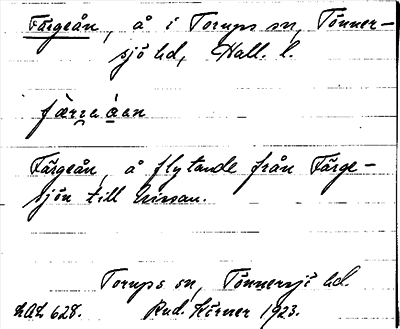 Färgeån, å i Torups sn, Tönner-
sjö hd, Hall. l.
færgeåen
Färgeån, å flytande från Färge-
sjön till Nissan.
Torups sn, Tönnersjö hd.
LAL 628. Rud. Körner 1923.